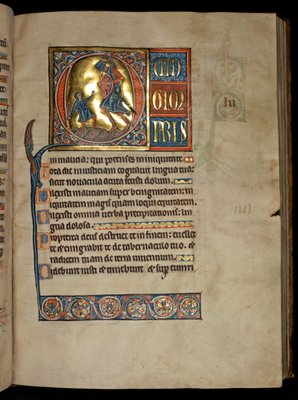 QUID
In
in malicia: qui potens es in iniquitate
Tota die iniusticiam cogitavit lingua tua:
sicut novacula acuta fecisti dolum.
Dilexisti maliciam super benignitatem:
iniquitatem magis quam loqui equitatem.
Dilexisti omnia verba precipitationis: lin
gua dolosa.
Propterea deus destruet te in finem: evellet
te et emigrabit te de tabernaculo tuo. et
radicem tuam de terra viventium.
Videbunt iusti et timebunt et super eum ri